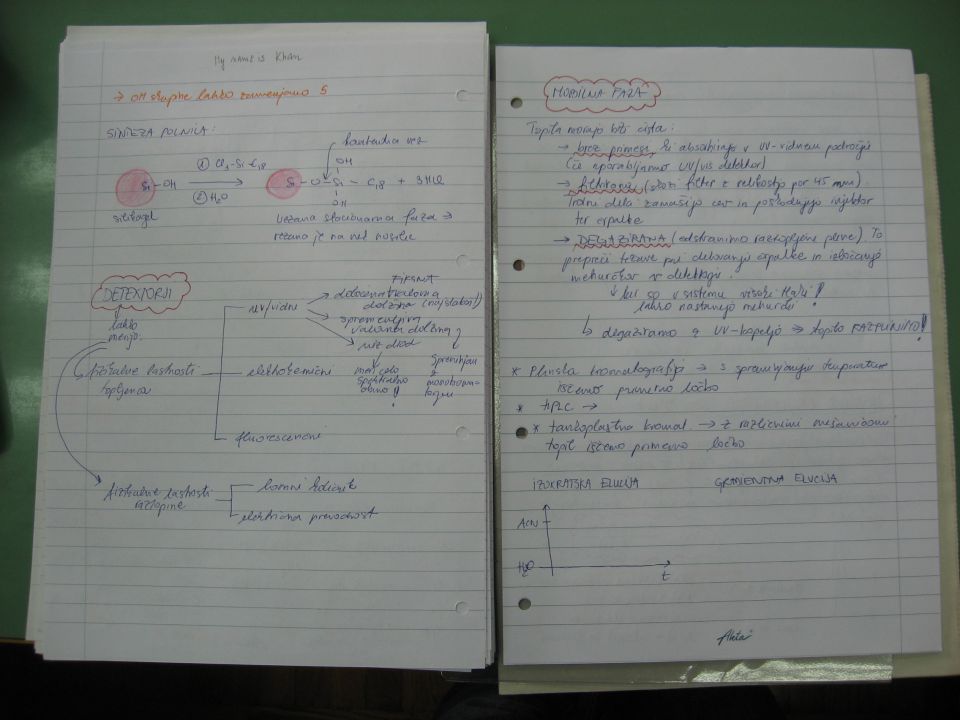 My name is Khan
→ OH skupine lahko zamenjamo s
SINTEZA POLNILA:
kovalentna vez
① Cl3-Si-C18
② H2O
OH
Si - OH → Si - O - Si - C18 + 3HCl
OH
silikagel
vezana stacionarna faza →
vezana je na nek nosilec
DETEKTORJI
lahko
merijo:
fizikalne lastnosti
topljenca
uv/vidni
FIKSNA
določena valovna
dolžina (najslabši!)
spremenljiva
valovna dolžina
niz diod
meri celo
spektralno
območje!
elektrokemični
fluorescenčni
fizikalne lastnosti
raztopine
lomni količnik
električna prevodnost
MOBILNA FAZA
Topila morajo biti čista:
→ brez primesi, ki absorbirajo v UV-vidnem področju
(če uporabljamo UV/vis detektor)
→ filtrirana (skozi filter z velikostjo por 45 mm).
Trdni delci zamašijo cev in poškodujejo injektor
ter črpalke
→ DEGAZIRANA (odstranimo raztopljene pline). To
prepreči težave pri delovanju črpalke in izločanje
mehurčkov v detektorju.
↓ ker so v sistemu visoki tlaki!
lahko nastanejo mehurčki!
↳ degaziramo z UV-kopeljo → topilo RAZPLINIMO!
* Plinska kromatografija → s spreminjanjem temperature
iščemo primerno ločbo
* HPLC →
* tankoplastna kromat. → z različnimi mešanicami
topil iščemo primerno ločbo
IZOKRATSKA ELUCIJA
GRADIENTNA ELUCIJA
ACN
H2O
t